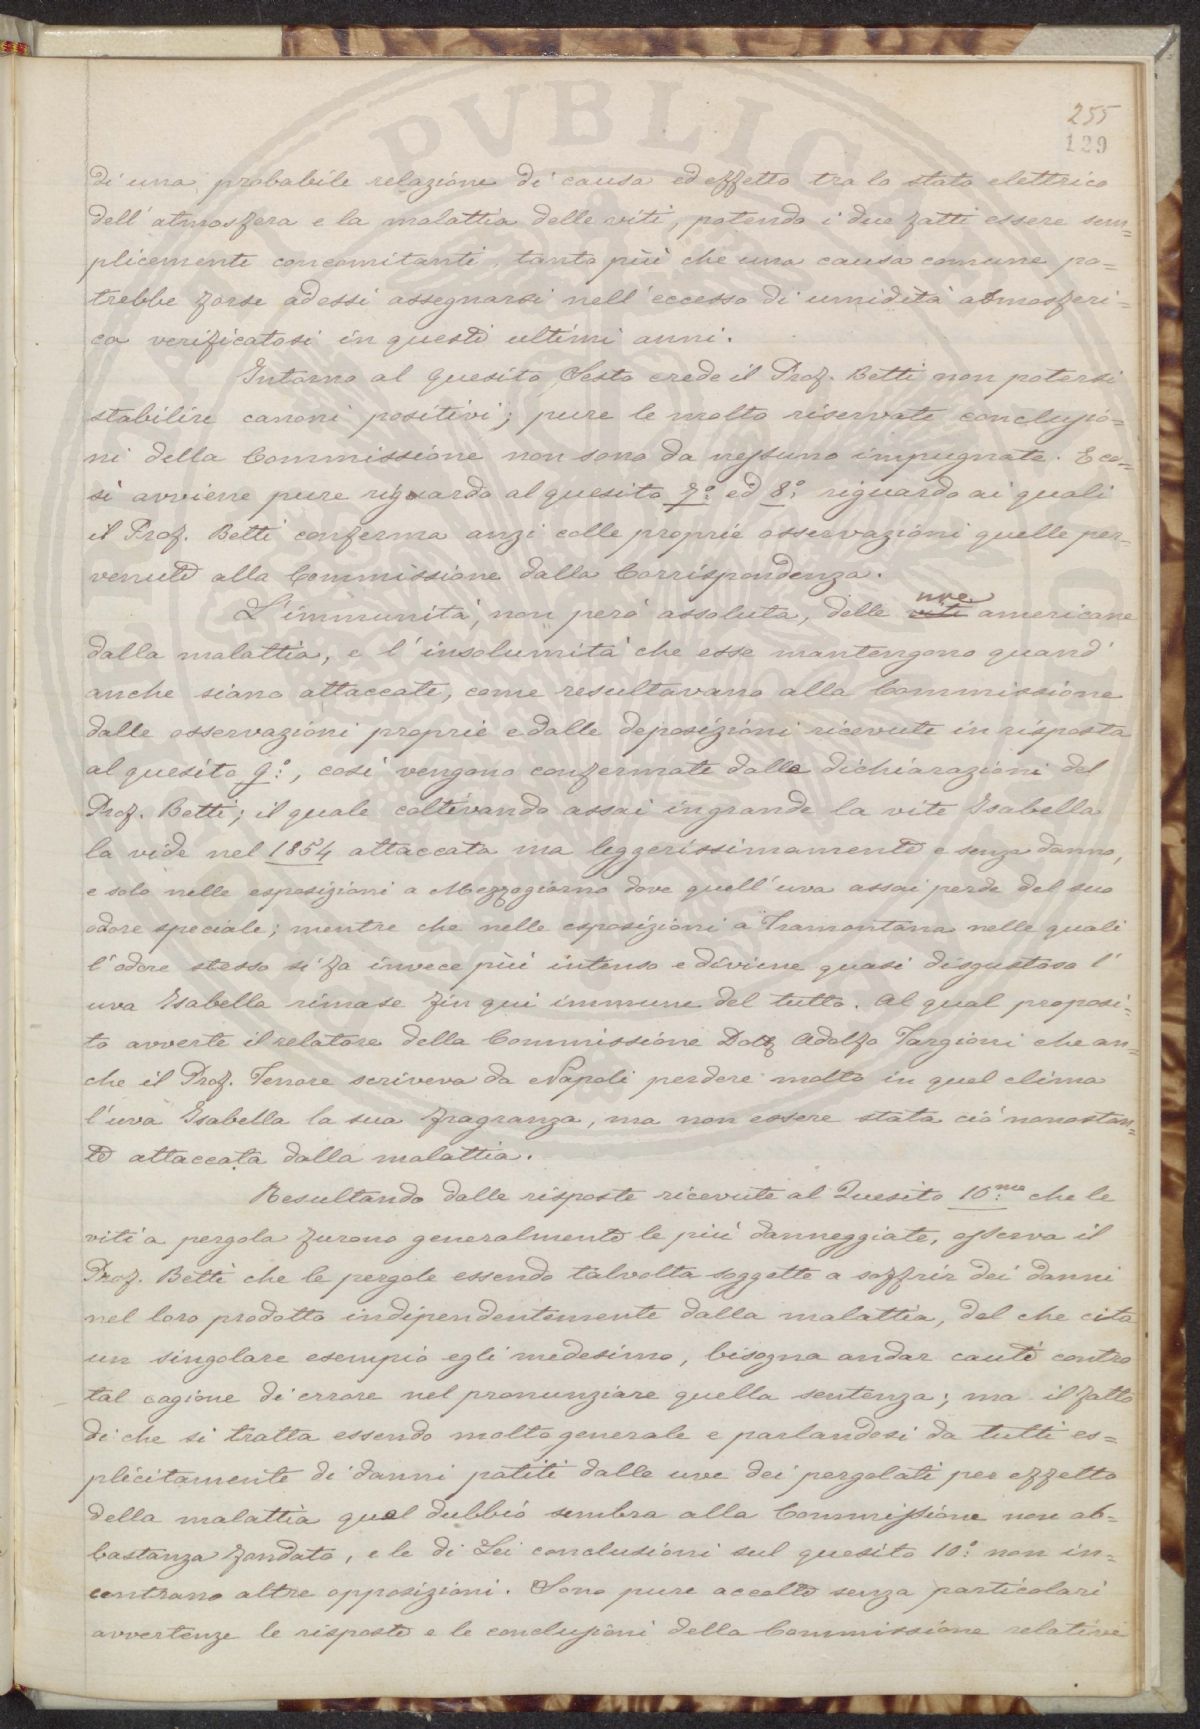 255
129
di una probabile relazione di causa ed effetto tra lo stato elettrico
dell'atmosfera e la malattia delle viti, potendo i due fatti essere sem=
plicemente concomitanti, tanto più che una causa comune po=
trebbe forse ad essi assegnarsi nell'eccesso di umidità atmosferi=
ca verificatosi in questi ultimi anni.
Intorno al Quesito Sesto crede il Prof. Betti non potersi
stabilire canoni positivi; pure le molto riservate conclusio=
ni della Commissione non sono da nessuno impugnate. E co=
sì avviene pure riguardo al quesito 7.º ed 8.º riguardo ai quali
il Prof. Betti conferma anzi colle proprie osservazioni quelle per=
venute alla Commissione dalla Corrispondenza.
L'immunità, non però assoluta, delle viti uve americane
dalla malattia, e l'insolumità che esse mantengono quand'
anche siano attaccate, come resultavano alla Commissione
dalle osservazioni proprie e dalle deposizioni ricevute in risposta
al quesito 9.º, così vengono confermate dalle dichiarazioni del
Prof. Betti; il quale coltivando assai in grande la vite Isabella
la vide nel 1854 attaccata ma leggerissimamente e senza danno,
e solo nelle esposizioni a Mezzogiorno dove quell'uva assai perde del suo
odore speciale; mentre che nelle esposizioni a Tramontana nelle quali
l'odore stesso si fa invece più intenso e diviene quasi disgustoso l'
uva Isabella rimase fin qui immune del tutto. Al qual proposi=
to avverte il relatore della Commissione Dott Adolfo Targioni che an=
che il Prof. Tenore scriveva da Napoli perdere molto in quel clima
l'uva Isabella la sua fragranza, ma non essere stata ciò nonostan=
te attaccata dalla malattia.
Resultando dalle risposte ricevute al Quesito 10.mo che le
viti a pergola furono generalmente le più danneggiate, osserva il
Prof. Betti che le pergole essendo talvolta soggette a soffrir dei danni
nel loro prodotto indipendentemente dalla malattia, del che cita
un singolare esempio egli medesimo, bisogna andar cauti contro
tal cagione di errore nel pronunziare quella sentenza; ma il fatto
di che si tratta essendo molto generale e parlandosi da tutti es=
plicitamente di danni patiti dalle uve dei pergolati per effetto
della malattia quel dubbio sembra alla Commissione non ab=
bastanza fondato, e le di Lei conclusioni sul quesito 10.º non in=
contrano altre opposizioni. Sono pure accolte senza particolari
avvertenze le risposte e le conclusioni della Commissione relative